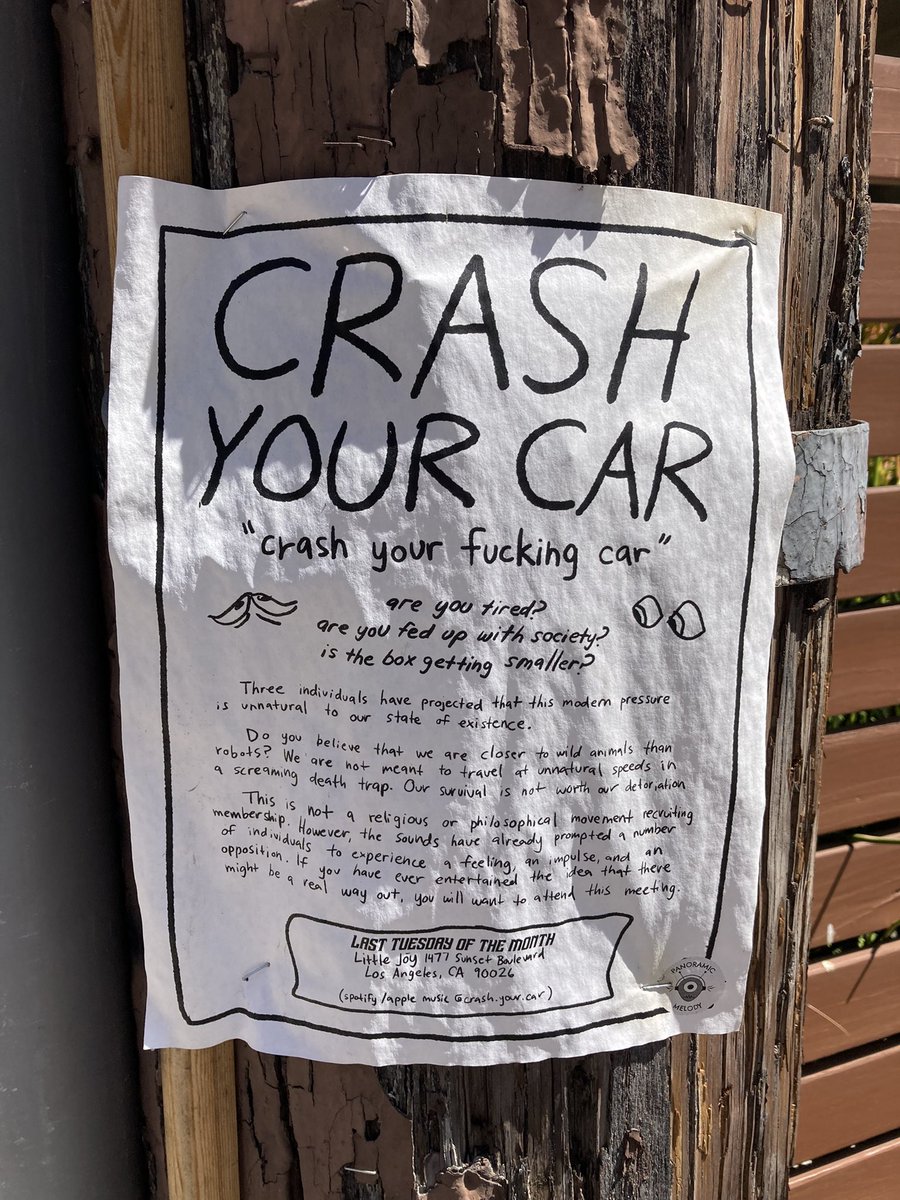 CRASH
YOUR CAR
"crash your fucking car"
are you tired?
are you fed up with society?
is the box getting smaller?
Three individuals have projected that this modern pressure
is unnatural to our state of existence.
Do you believe that we are closer to wild animals than
robots? We are not meant to travel at unnatural speeds in
a screaming death trap. Our survival is not worth our detoriation
This is not a religious or philosophical movement recruiting
membership. However, the sounds have already prompted a number
of individuals to experience a feeling, an impulse, and an
opposition. If you have ever entertained the idea that there
might be a real way out, you will want to attend this meeting.
LAST TUESDAY OF THE MONTH
Little Joy 1477 Sunset Boulevard
Los Angeles, CA 90026
(spotify/apple music @crash.your.car)
PANORAMIC
MELODY